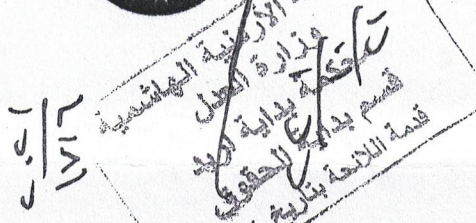 الأردنية الهاشمية
وزارة العدل
محكمة بداية اربد
قسم بداية الحقوق
قدمة اللائحة بتاريخ